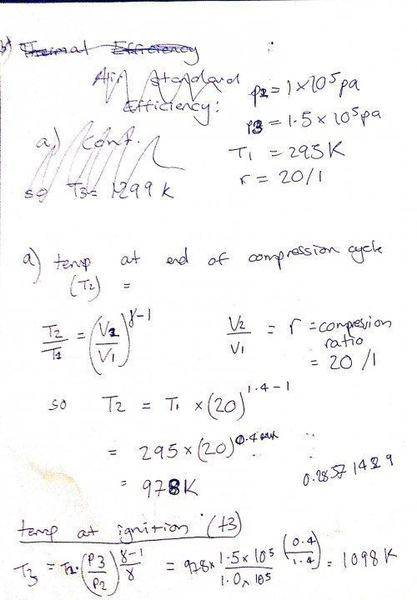 b) Thermal Efficiency
Air Standard
Efficiency:
P2 = 1×10⁵pa
P3 = 1.5×10⁵pa
T₁ = 295K
r = 20/1
a) cont.
so T3 = 1299 K
a) temp at end of compression cycle
(T₂) =
T₂/T₁ = (V₂/V₁)^γ-1
V₂/V₁ = r = compression
ratio
= 20/1
so T₂ = T₁ × (20)^1.4-1
= 295 × (20)^0.4
= 978K
0.28571429
temp at ignition (t3)
T₃ = T₂.(P3/P2)^γ-1/γ = 978× 1.5×10⁵/1.0×10⁵ (0.4/1.4) = 1098K